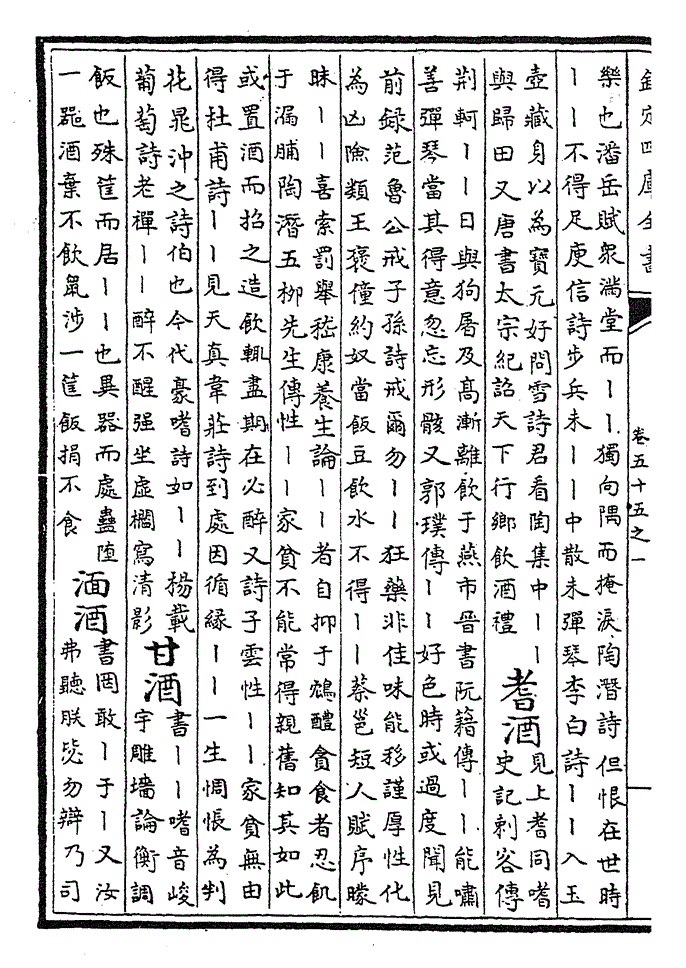 欽定四庫全書
卷五十五之一
樂也潘岳賦衆滿堂而丨丨獨向隅而掩淚陶潛詩但恨在世時
丨丨不得足庾信詩步兵未丨丨中散未彈琴李白詩丨丨入玉
壺藏身以為寶元好問雪詩君看陶集中丨丨
與歸田又唐書太宗紀詔天下行鄉飲酒禮
耆酒
見上耆同嗜
史記刺客傳
荊軻丨丨日與狗屠及高漸離飲于燕市晉書阮籍傳丨丨能嘯
善彈琴當其得意忽忘形骸又郭璞傳丨丨好色時或過度聞見
前録范魯公戒子孫詩戒爾勿丨丨狂藥非佳味能移謹厚性化
為凶險類王褒僮約奴當飯豆飲水不得丨丨蔡邕短人賦序矇
昧丨丨喜索罰舉嵇康養生論丨丨者自抑于鴆醴貪食者忍飢
于漏脯陶潛五栁先生傳性丨丨家貧不能常得親舊知其如此
或置酒而招之造飲輒盡期在必醉又詩子雲性丨丨家貧無由
得杜甫詩丨丨見天真韋莊詩到處因循縁丨丨一生惆悵為判
花晁沖之詩伯也今代豪嗜詩如丨丨楊載
葡萄詩老禪丨丨醉不醒强坐虛櫩寫清影
甘酒
書丨丨嗜音峻
宇雕墻論衡調
飯也殊筐而居丨丨也異器而處蠱墮
一器酒棄不飲鼠涉一筐飯捐不食
湎酒
書罔敢丨于丨又汝
弗聽朕毖勿辯乃司